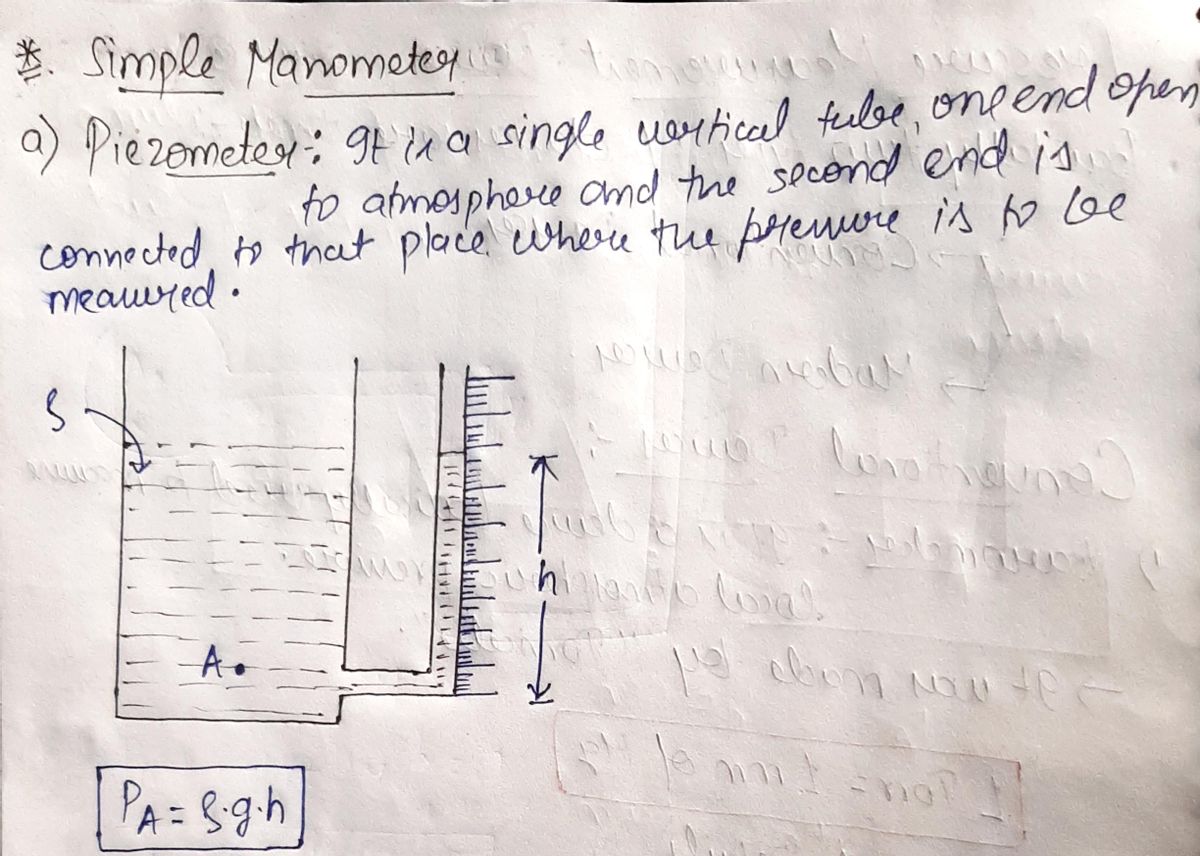 *. Simple Manometer
a) Piezometer: It is a single vertical tube, one end open
to atmosphere and the second end is
connected to that place where the pressure is to be
measured.
ρ
h
A.
P_A = ρ.g.h